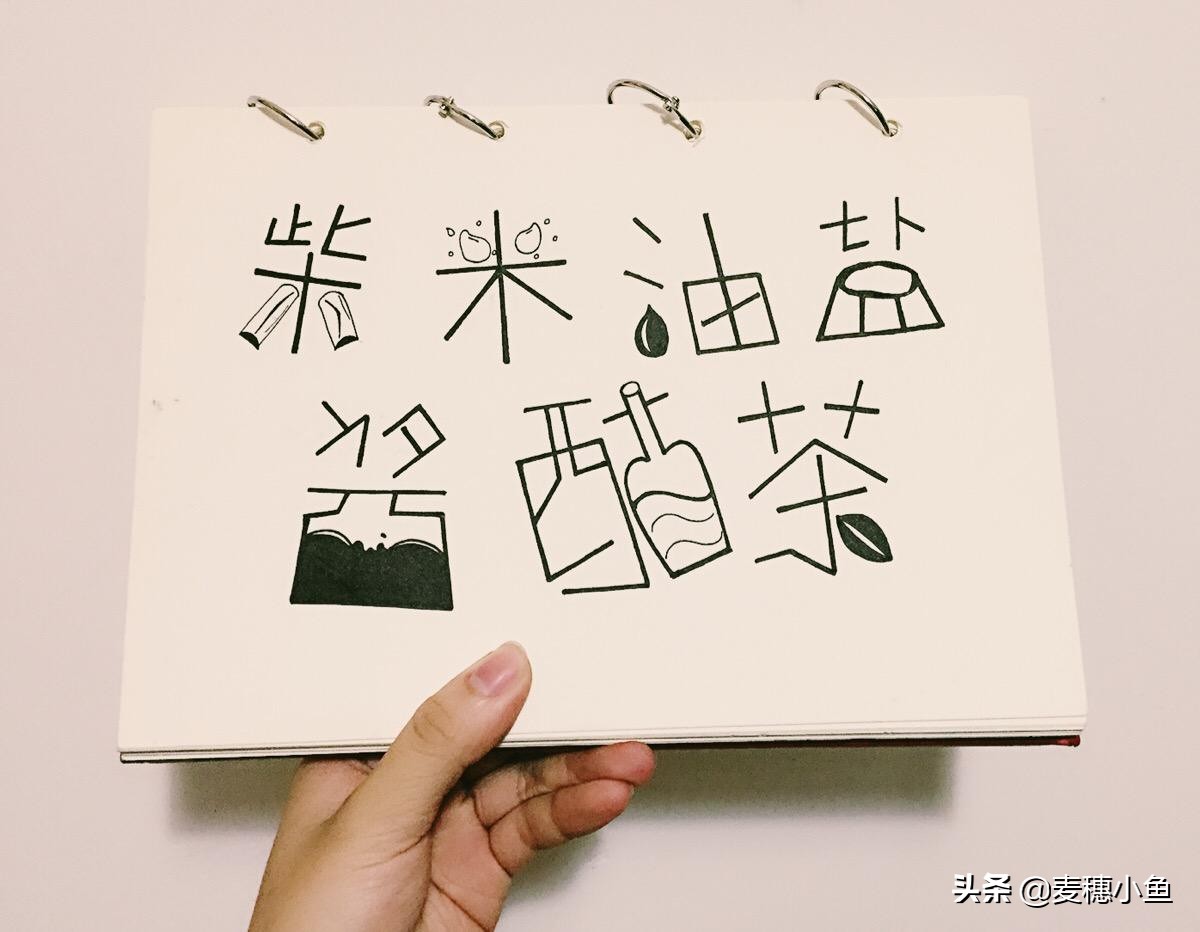 柴米油盐
酱醋茶
头条 @麦穗小鱼